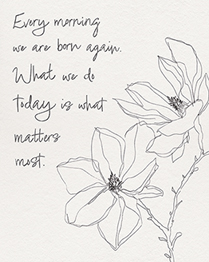 Every morning
we are born again.
What we do
today is what
matters
most.